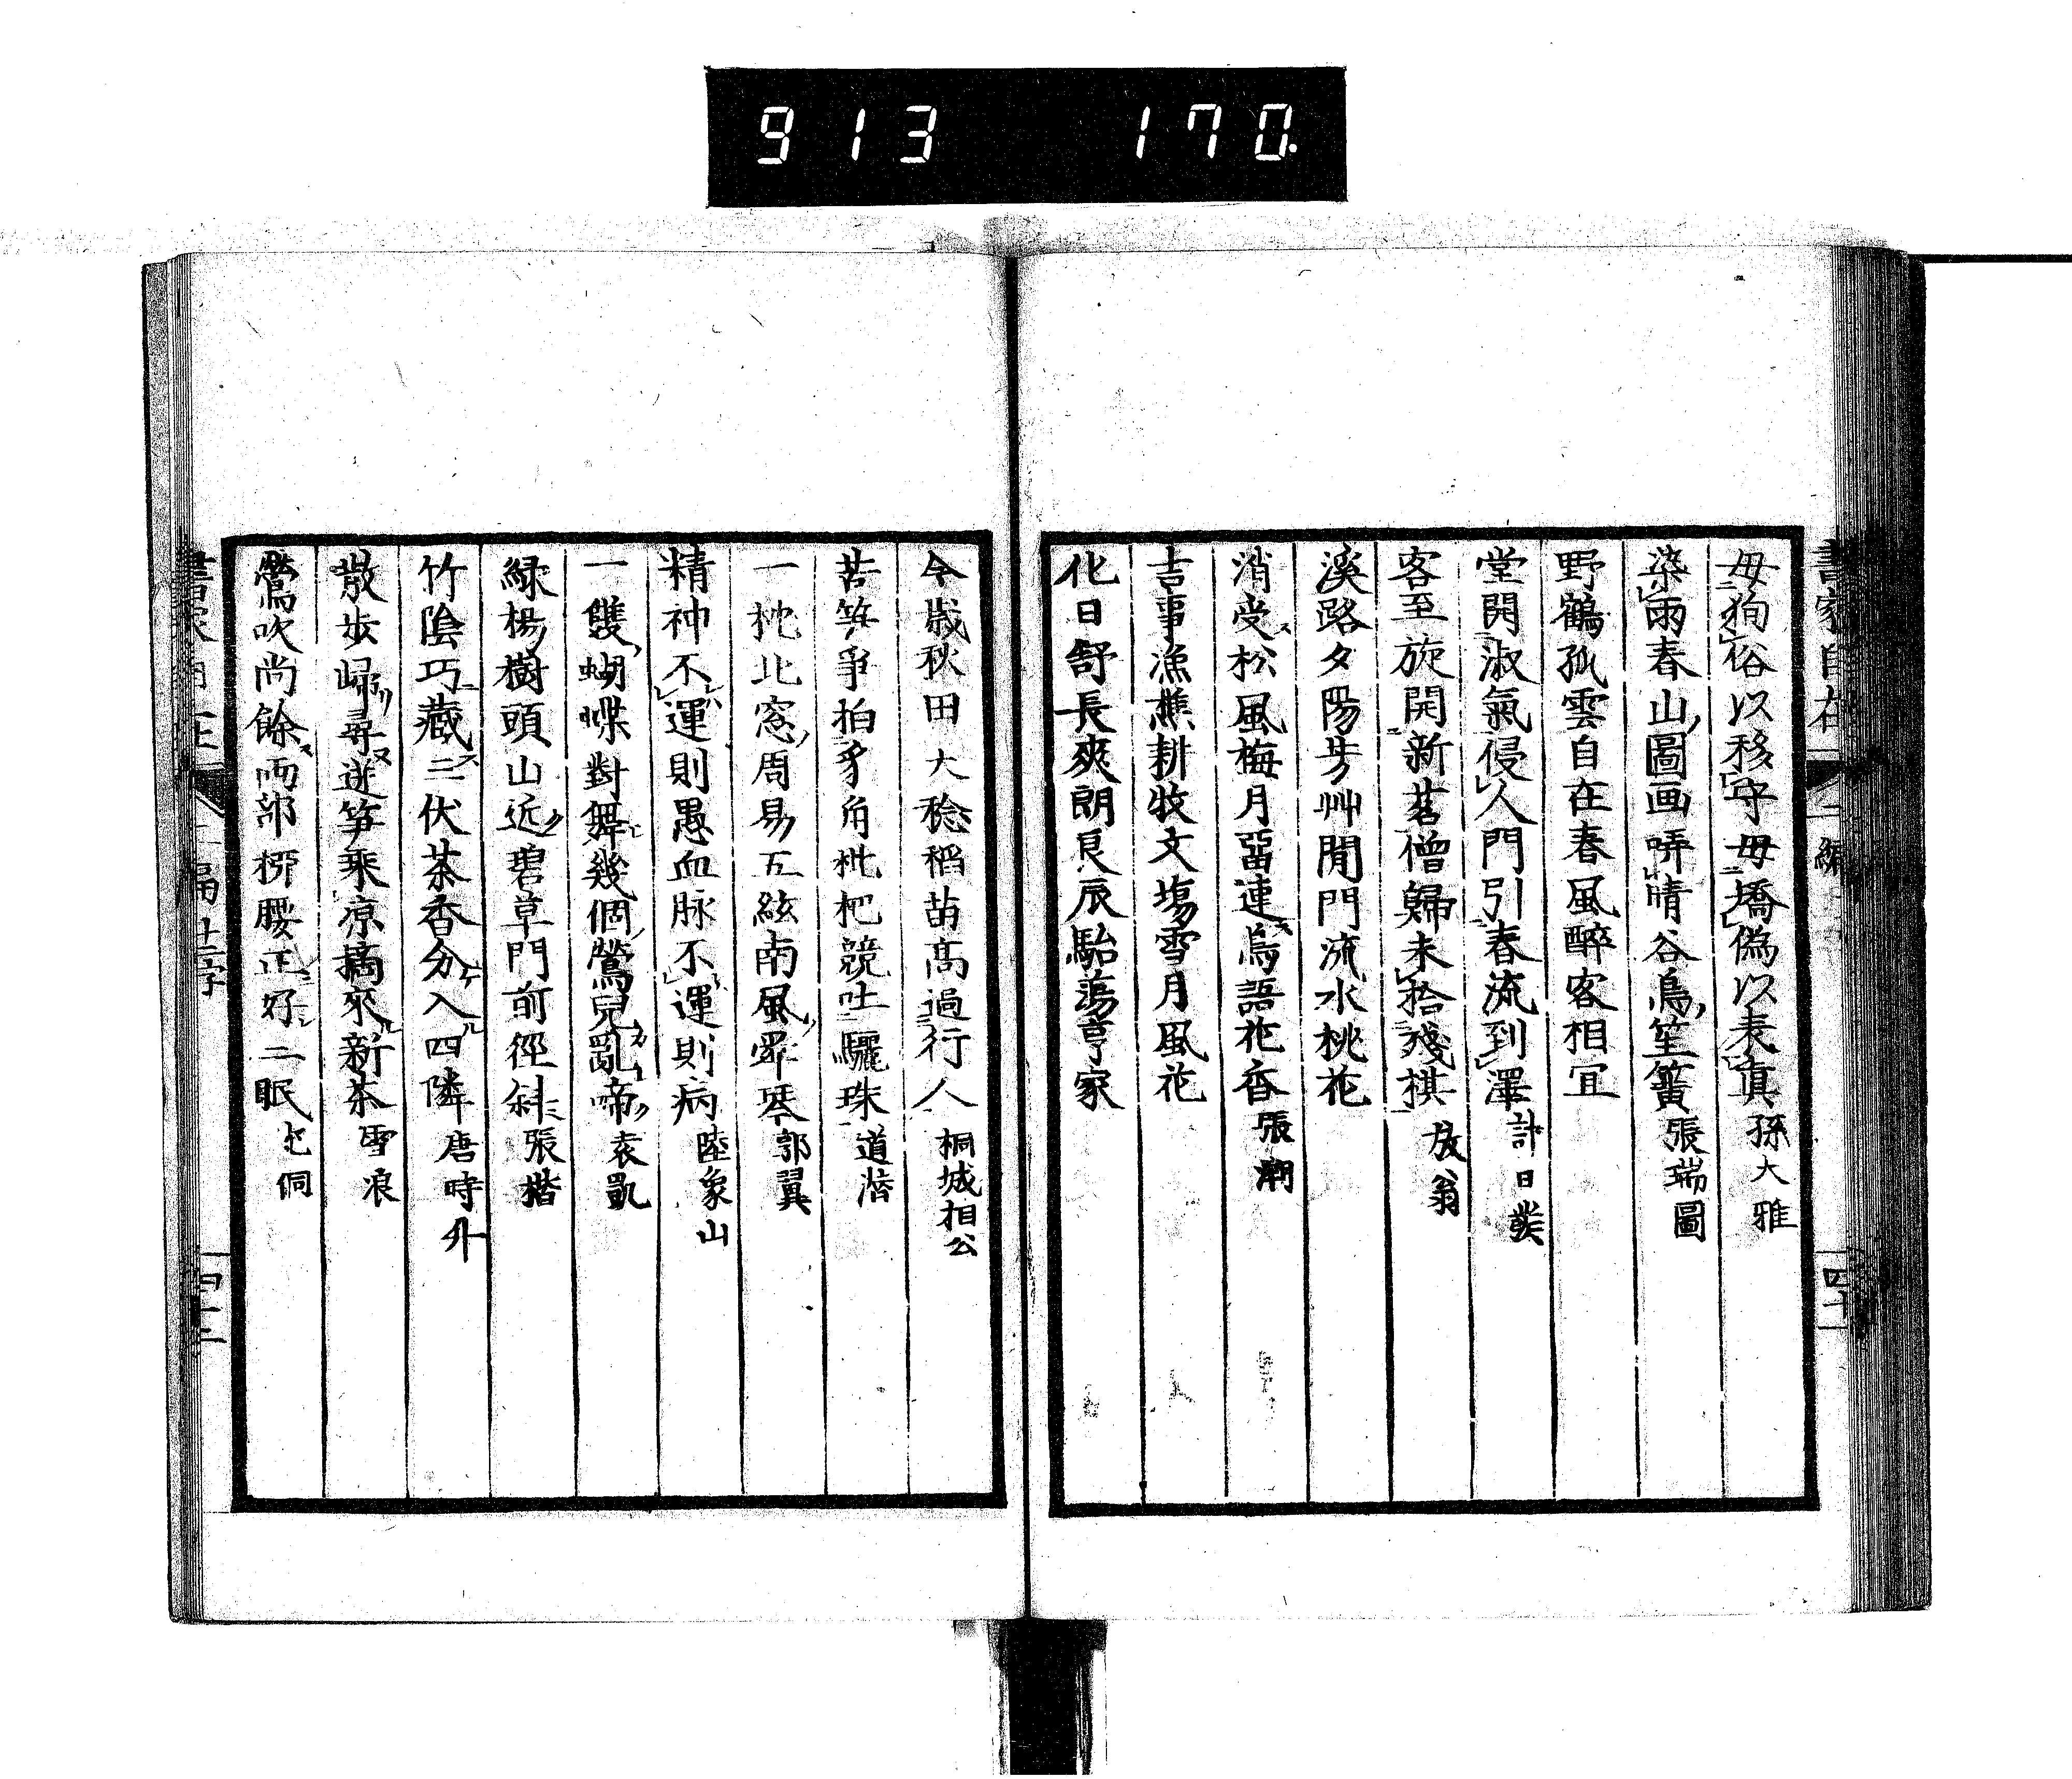 913 170.
毋狥俗以移守毋矯偽以表真 孫大雅
染雨春山圖画哢晴谷鳥笙簧 張瑞圖
野鶴孤雲自在春風醉客相宜
堂開淑氣侵人門引春流到澤 計日
客至旋開新茗僧歸未拾殘棋 放翁
溪路夕陽芳艸閒門流水桃花
消受松風梅月留連鳥語花香 張潮
吉事漁樵耕牧文場雪月風花
化日舒長爽朗良辰駘蕩亨家
今歲秋田大稔稻苗高過行人 桐城相公
苦筍爭抽豸角枇杷競吐驪珠 道潛
一枕北窓周易五絃南風舜琴 郭翼
精神不運則愚血脉不運則病 陸象山
一雙蝴蝶對舞幾個鶯兒亂啼 袁凱
緑楊樹頭山近碧草門前徑斜 張楷
竹陰巧藏三伏茶香分入四隣 唐時升
散步歸尋迸笋乘凉摘來新茶 雪浪
鶯吹尚餘两部桺腰正好二眠 屺侗
書家自在 二編
四十一
二編 十二字
四十二